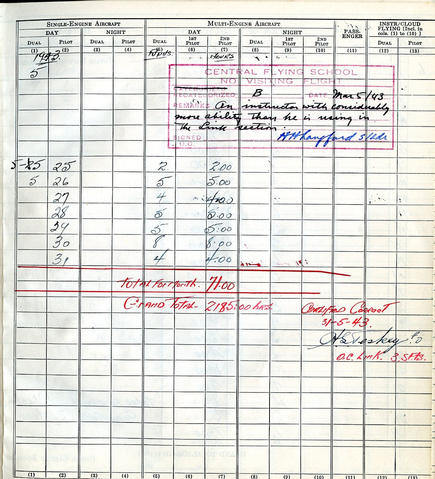 SINGLE-ENGINE AIRCRAFT MULTI-ENGINE AIRCRAFT PASS-ENGER INSTR/CLOUD FLYING [Incl. in cols. (1) to (10)]
DAY NIGHT DAY NIGHT
DUAL PILOT DUAL PILOT DUAL 1ST PILOT 2ND PILOT DUAL 1ST PILOT 2ND PILOT DUAL PILOT
(1) (2) (3) (4) (5) (6) (7) (8) (9) (10) (11) (12) (13)
1943 Hours
5
CENTRAL FLYING SCHOOL
NO VISITING FLIGHT
RECATEGORIZED B DATE Mar 5/43
REMARKS An instructor with considerably
more ability than he is using in
the Link section.
SIGNED
5-25 25 2 2:00
5 26 5 5:00
27 4 4:00
28 5:00
29 5 5:00
30 8 8:00
31 4 4:00
Total for month. 71:00
Grand Total- 2185:00 hrs
Certified Correct
31-5-43.
O.C. Link. 3. SFTS.
(1) (2) (3) (4) (5) (6) (7) (8) (9) (10) (11) (12) (13)